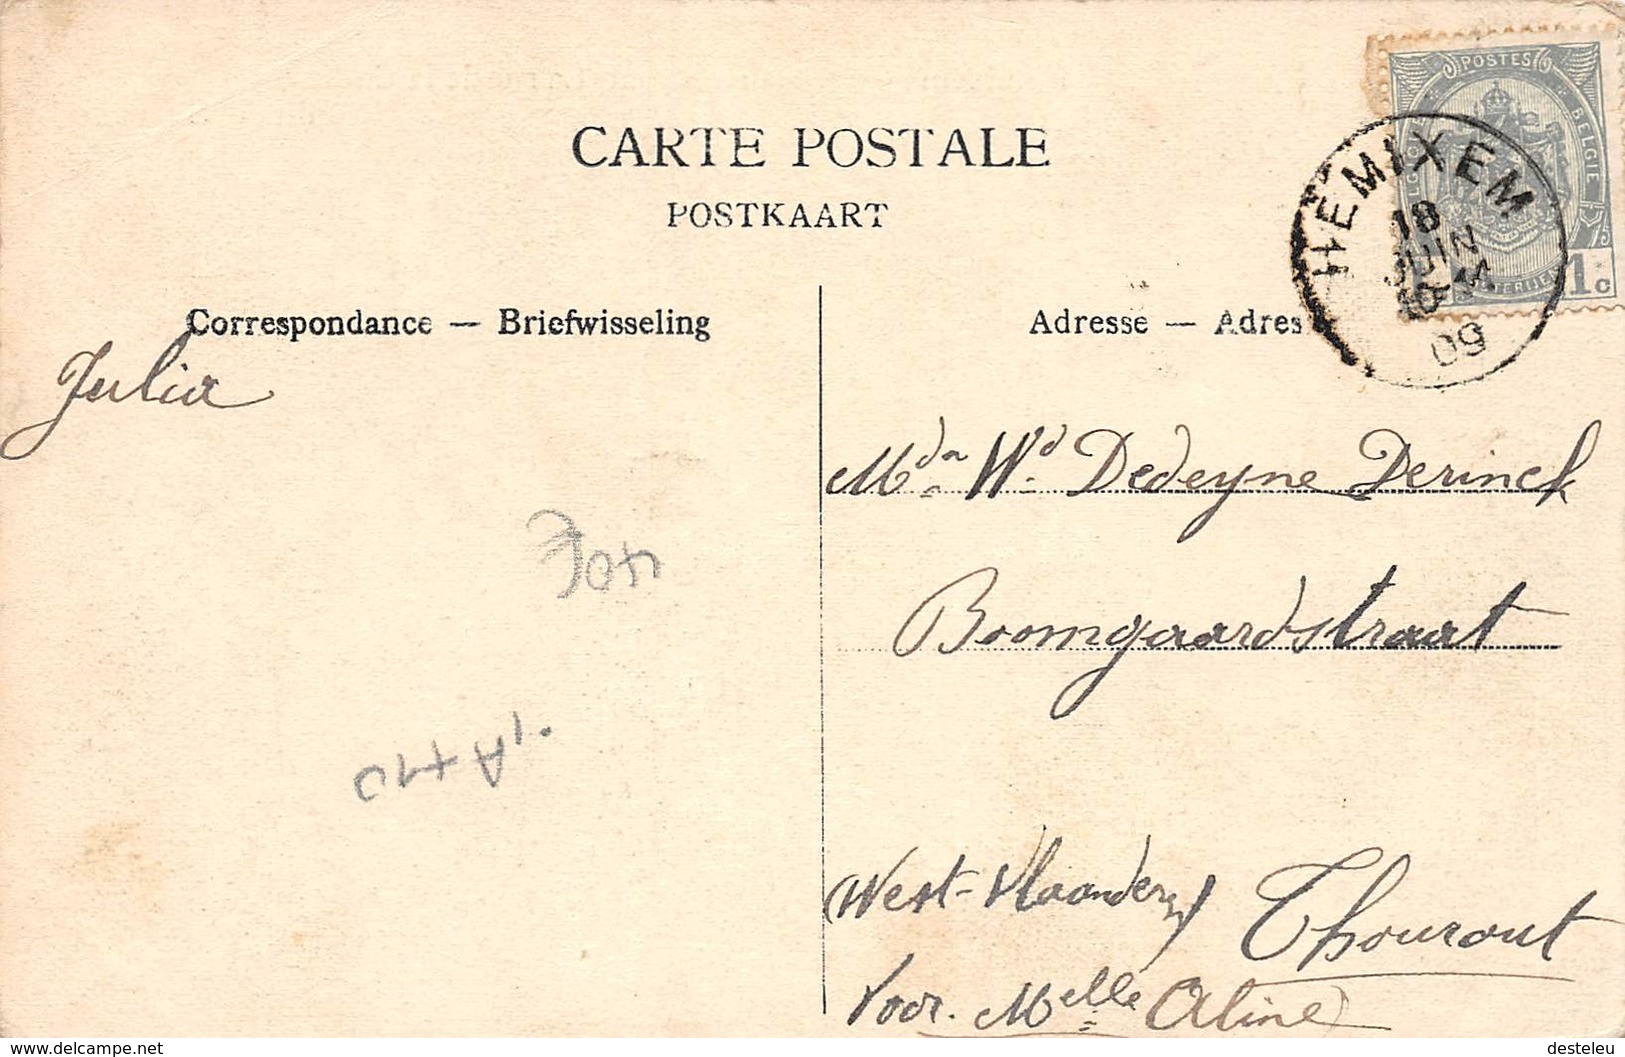 CARTE POSTALE
POSTKAART
Correspondance — Briefwisseling
Adresse — Adres
POSTES
BELGIE
1c
HEMIXEM
18
JUIN
09
Julia
Mda Wd Dedeyne Derinck
Boomgaardstraat
(West-Vlaanderen)
Thourout
Voor. Melle Aline
40E
delcampe.net
desteleu